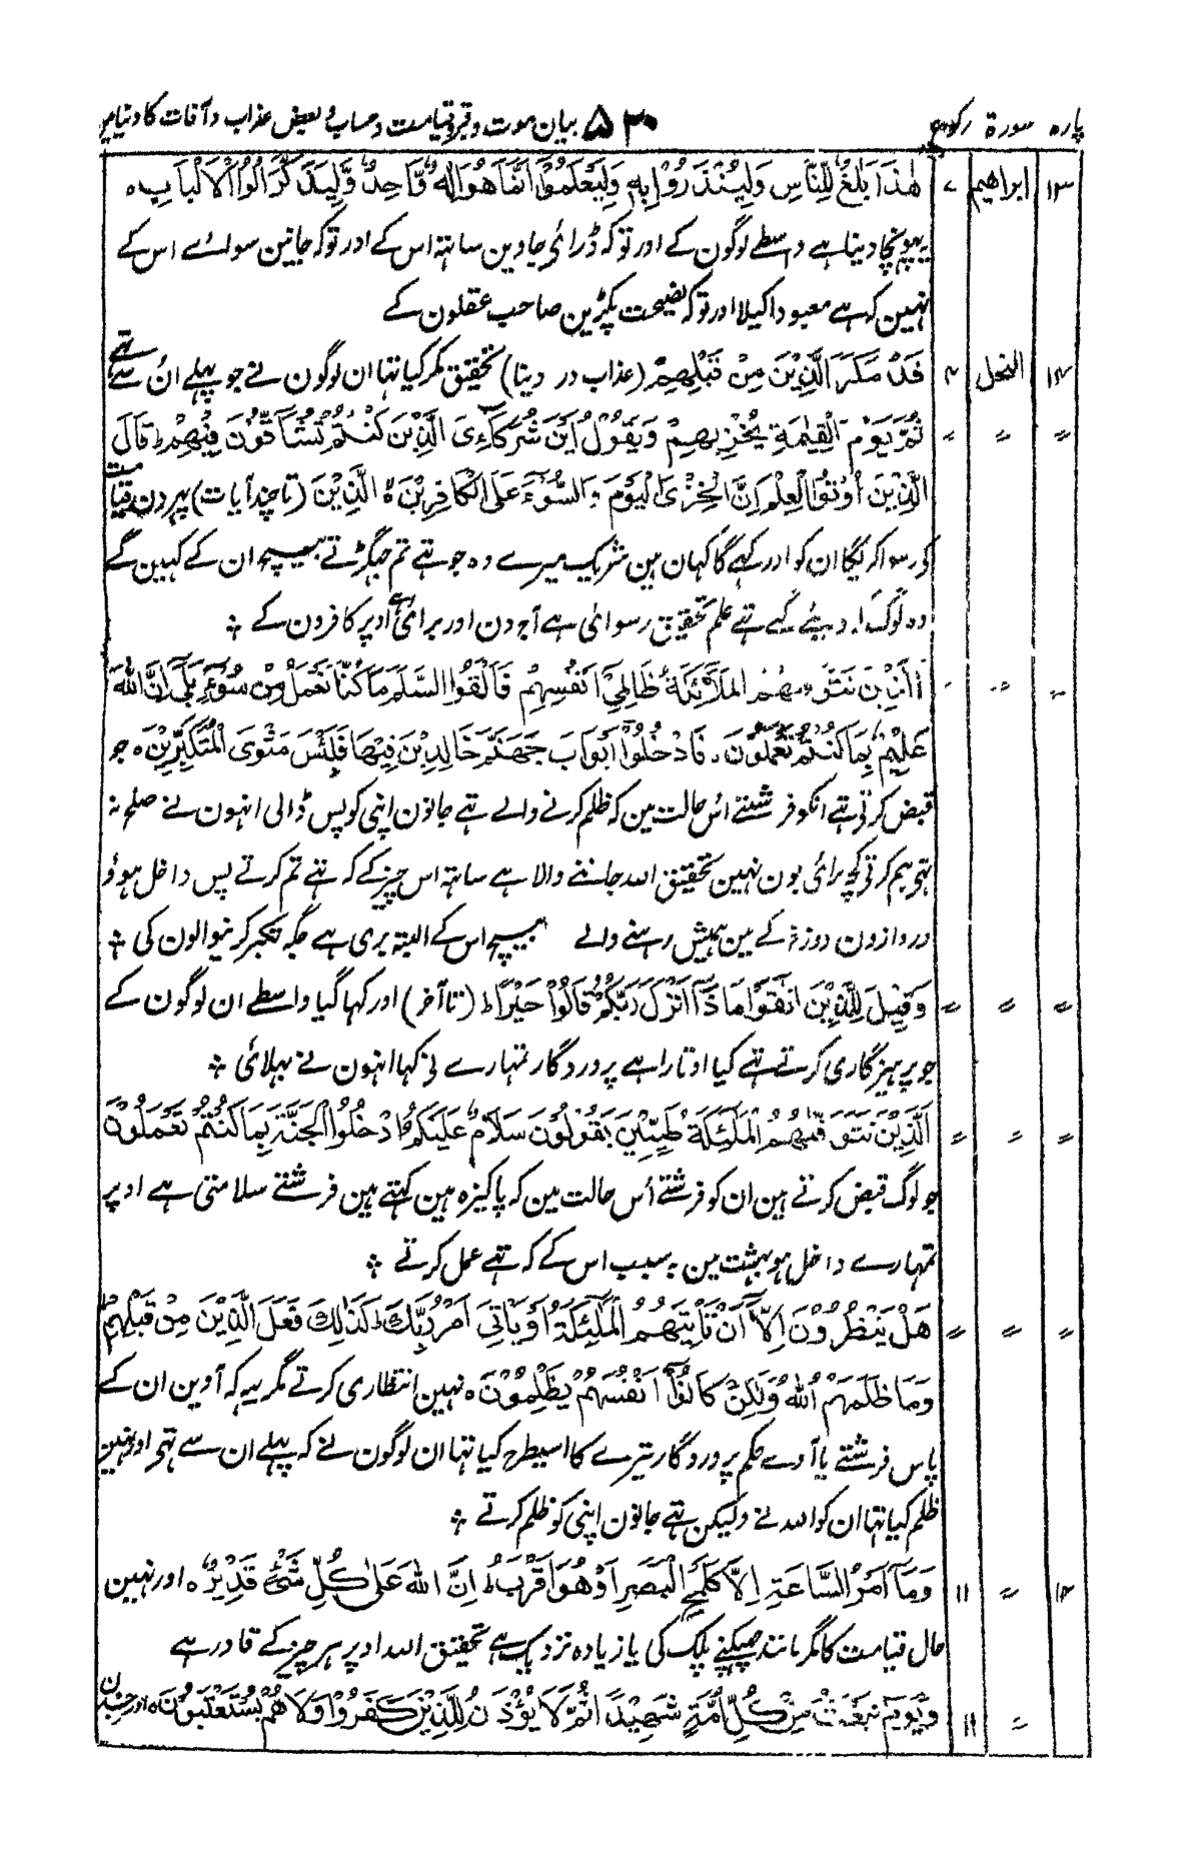 پارہ سورۃ رکوع ۵۳۰ بیان موت و قبر و قیامت و حساب و بعض عذاب و آفات کا دنیا میں
۱۳ ابراھیم ۷ هٰذَا بَلٰغٌ لِّلنَّاسِ وَلِيُنْذَرُوْا بِهٖ وَلِيَعْلَمُوْٓا اَنَّمَا هُوَ اِلٰهٌ وَّاحِدٌ وَّلِيَذَّكَّرَ اُولُوا الْاَلْبَابِ ہ
یہ پہونچا دینا ہے واسطے لوگون کے اور تو کہ ڈرائی جاوین ساتہہ اس کے اور تو کہ جانین سوائے اس کے
نہین کہ ہے معبود اکیلا اور تو کہ نصیحت پکڑین صاحب عقلون کے
۱۴ النحل ۴ قَدْ مَكَرَ الَّذِيْنَ مِنْ قَبْلِهِمْ (عذاب در دینا) تحقیق مکر کیا تہا ان لوگون نے جو پہلے ان سے تہے
〃 〃 〃 ثُمَّ يَوْمَ الْقِيٰمَةِ يُخْزِيْهِمْ وَيَقُوْلُ اَيْنَ شُرَكَآءِىَ الَّذِيْنَ كُنْتُمْ تُشَآقُّوْنَ فِيْهِمْ ط قَالَ
الَّذِيْنَ اُوْتُوا الْعِلْمَ اِنَّ الْخِزْىَ الْيَوْمَ وَالسُّوْٓءَ عَلَى الْكَافِرِيْنَ ہ الَّذِيْنَ (تا چند آیات) پہر دن قیامت
کی رسوا کریگا ان کو اور کہے گا کہان ہین شریک میرے وہ جو تہے تم جہگڑتے بیچ ان کے کہین گے
وہ لوگ ۔ دیئے گئے تہے علم تحقیق رسوائی ہے آج دن اور برائی ہے اوپر کافرون کے ؞
〃 〃 〃 اَلَّذِيْنَ تَتَوَفّٰهُمُ الْمَلَآئِكَةُ ظَالِمِىْٓ اَنْفُسِهِمْ فَاَلْقَوُا السَّلَمَ مَا كُنَّا نَعْمَلُ مِنْ سُوْٓءٍ بَلٰٓى اِنَّ اللّٰهَ
عَلِيْمٌ بِمَا كُنْتُمْ تَعْمَلُوْنَ ۔ فَادْخُلُوْٓا اَبْوَابَ جَهَنَّمَ خَالِدِيْنَ فِيْهَا فَلَبِئْسَ مَثْوَى الْمُتَكَبِّرِيْنَ ہ جو
قبض کرتی تہے انکو فرشتے اس حالت مین کہ ظلم کرنے والے تہے جانون اپنی کو پس ڈالی انہون نے صلح نہ
تہے ہم کرتی کچہ برائی یون نہین تحقیق اللہ جاننے والا ہے ساتہہ اس چیز کے کہ تہے تم کرتے پس داخل ہوؤ
دروازون دوزخ کے مین ہمیش رہنے والے بیچ اس کے البتہ بری ہے جگہ تکبر کرنیوالون کی ؞
〃 〃 〃 وَقِيْلَ لِلَّذِيْنَ اتَّقَوْا مَا ذَآ اَنْزَلَ رَبُّكُمْ قَالُوْا خَيْرًا ط (تا آخر) اور کہا گیا واسطے ان لوگون کے
جو پرہیزگاری کرتے تہے کیا اوتارا ہے پروردگار تمہارے نی کہا انہون نے بہلائی ؞
〃 〃 〃 اَلَّذِيْنَ تَتَوَفّٰهُمُ الْمَلٰٓئِكَةُ طَيِّبِيْنَ يَقُوْلُوْنَ سَلَامٌ عَلَيْكُمُ ادْخُلُوا الْجَنَّةَ بِمَا كُنْتُمْ تَعْمَلُوْنَ
جو لوگ قبض کرتے ہین ان کو فرشتے اس حالت مین کہ پاکیزہ ہین کہتے ہین فرشتے سلامتی ہے اوپر
تمہارے داخل ہو بہشت مین بہ سبب اس کے کہ تہے عمل کرتے ؞
〃 〃 〃 هَلْ يَنْظُرُوْنَ اِلَّآ اَنْ تَاْتِيَهُمُ الْمَلٰٓئِكَةُ اَوْ يَاْتِىَ اَمْرُ رَبِّكَ ط كَذٰلِكَ فَعَلَ الَّذِيْنَ مِنْ قَبْلِهِمْ ط
وَمَا ظَلَمَهُمُ اللّٰهُ وَلٰكِنْ كَانُوْٓا اَنْفُسَهُمْ يَظْلِمُوْنَ ہ نہین انتظاری کرتے مگر یہہ کہ آوین ان کے
پاس فرشتے یا آوے حکم پروردگار تیرے کا اسیطرح کیا تہا ان لوگون نے کہ پہلے ان سے تہے اور نہین
ظلم کیا تہا ان کو اللہ نے ولیکن تہے جانون اپنی کو ظلم کرتے ؞
۱۴ 〃 ۱۱ وَمَآ اَمْرُ السَّاعَةِ اِلَّا كَلَمْحِ الْبَصَرِ اَوْ هُوَ اَقْرَبُ ط اِنَّ اللّٰهَ عَلٰى كُلِّ شَىْءٍ قَدِيْرٌ ہ اور نہین
حال قیامت کا مگر مانند جہپکنے پلک کی یا زیادہ نزدیک ہے تحقیق اللہ اوپر ہر چیز کے قادر ہے
〃 ۱۱ وَيَوْمَ نَبْعَثُ مِنْ كُلِّ اُمَّةٍ شَهِيْدًا ثُمَّ لَا يُؤْذَنُ لِلَّذِيْنَ كَفَرُوْا وَلَا هُمْ يُسْتَعْتَبُوْنَ ہ اور جسدن